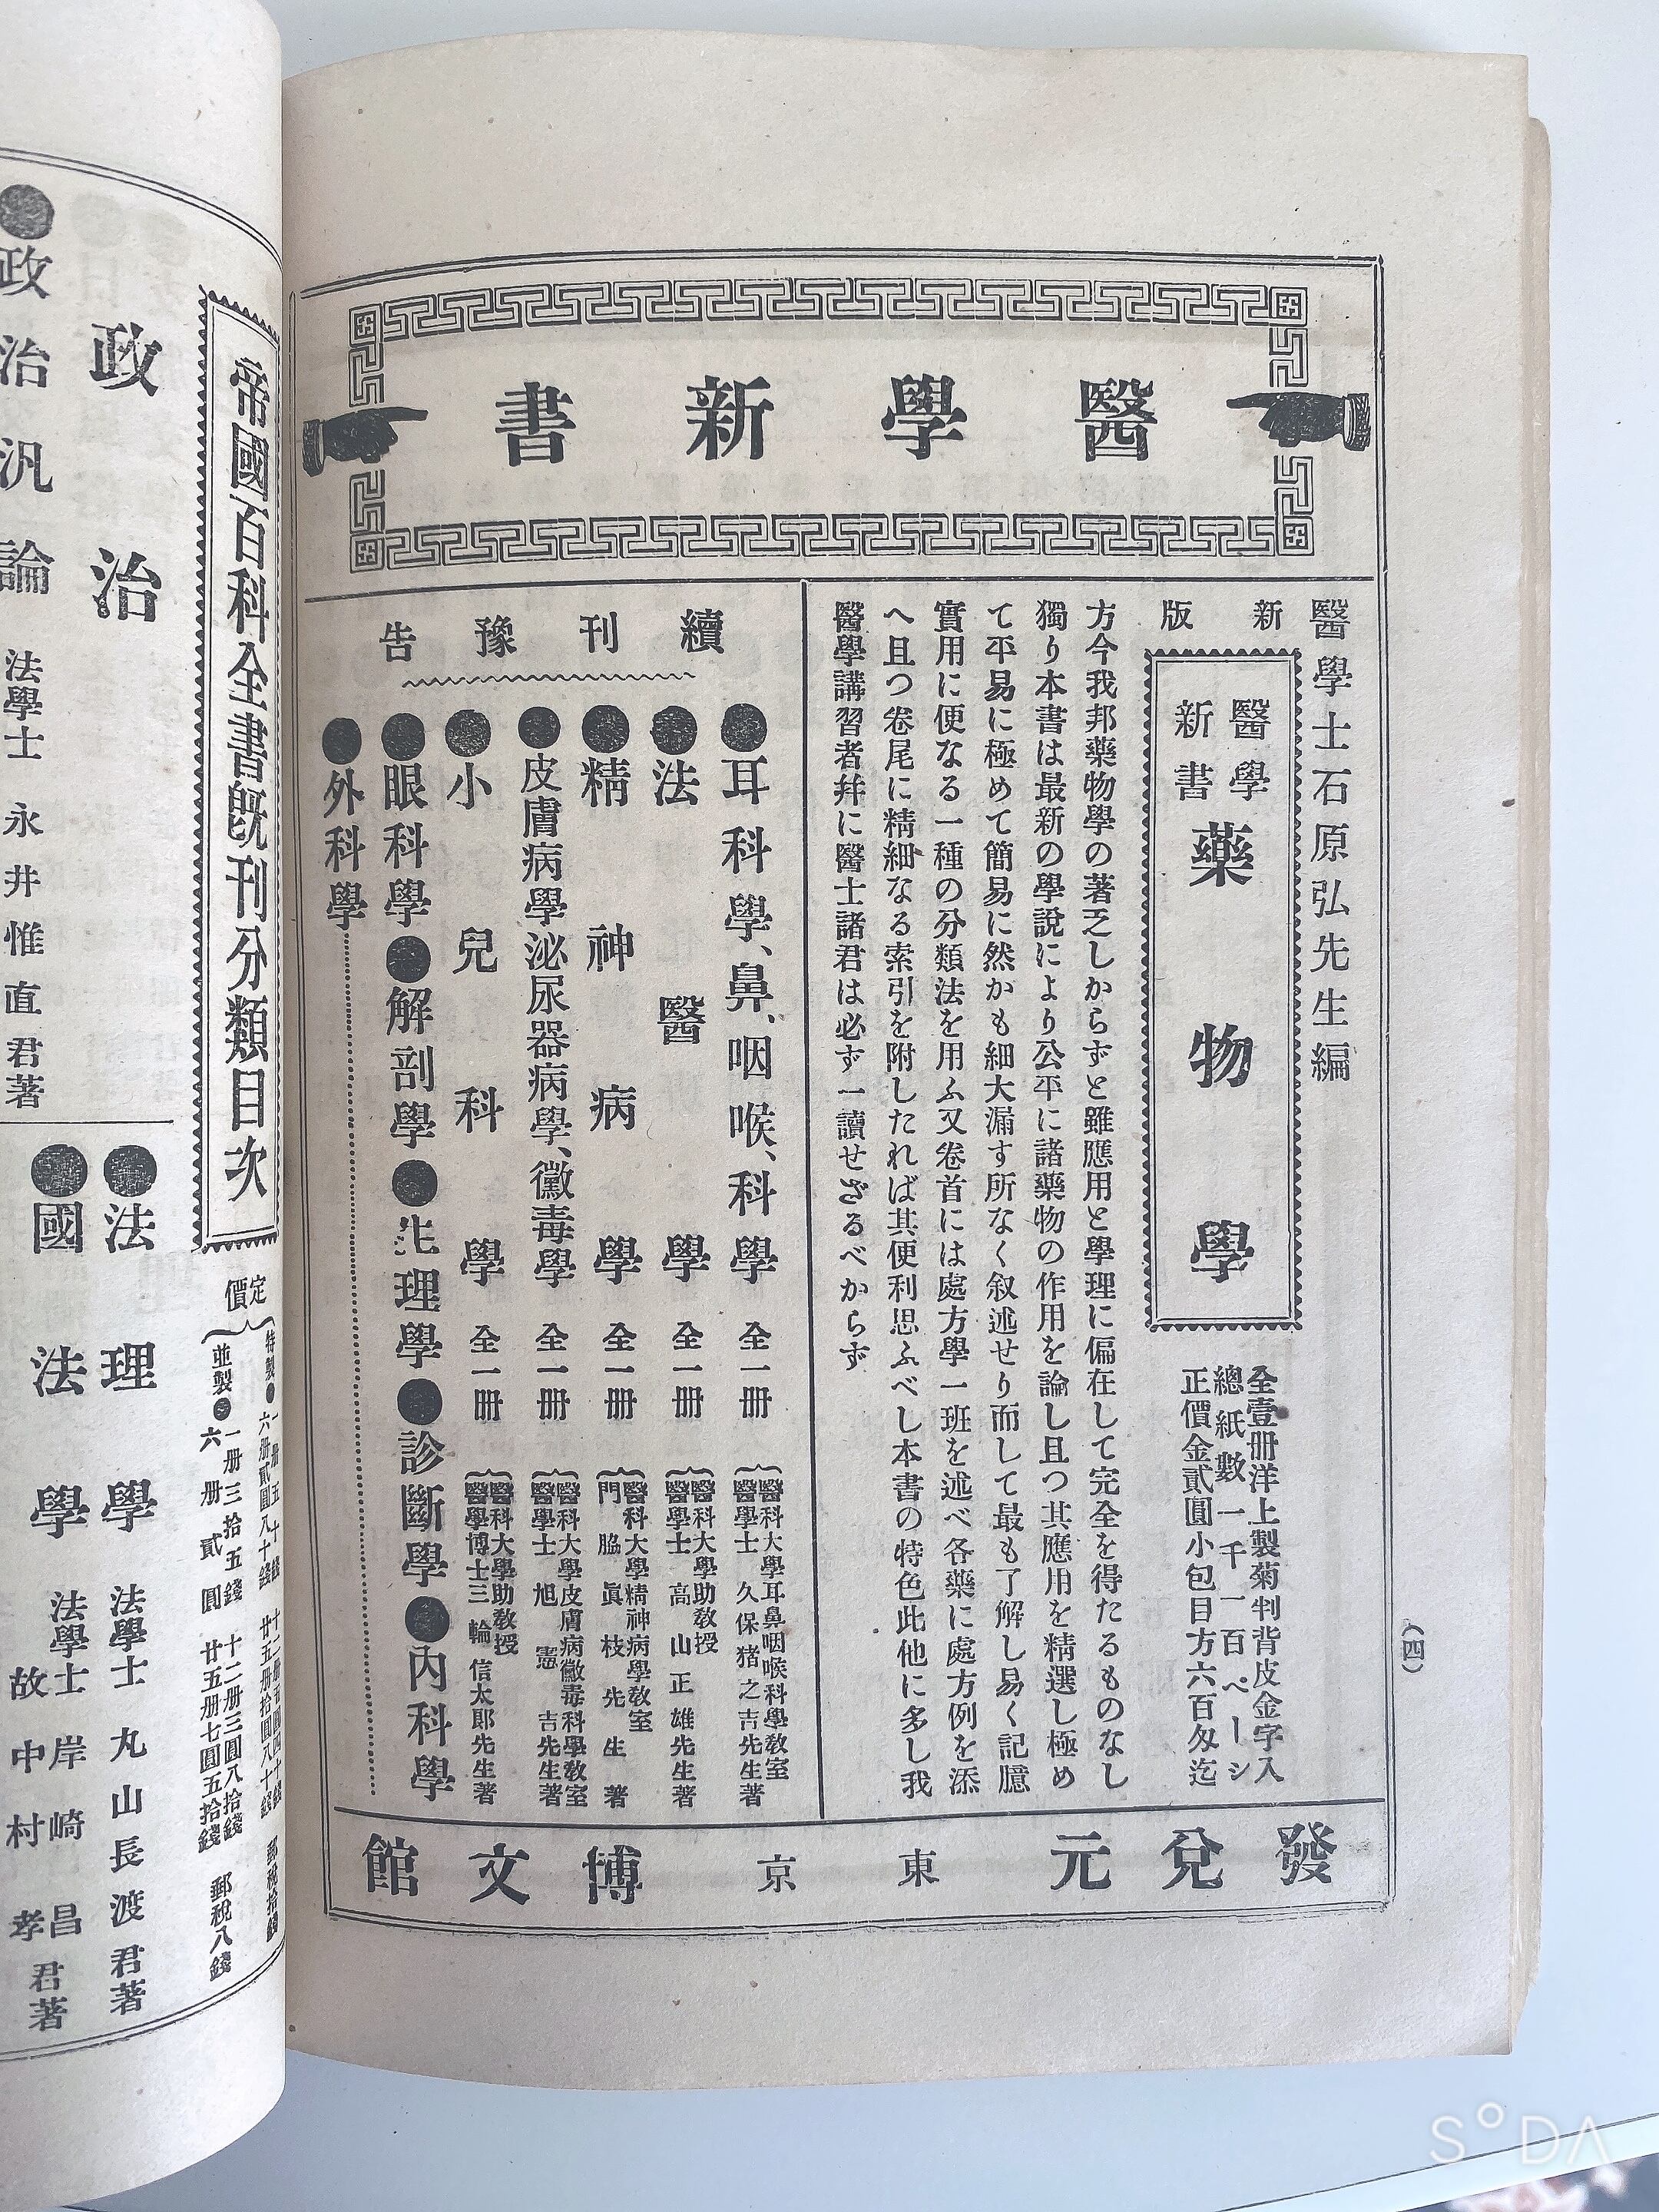 (四)
醫學新書
醫學士石原弘先生編
新版
醫學新書
藥物學
全壹冊洋上製菊判背皮金字入
總紙數一千一百ペーシ
正價金貳圓小包目方六百匁迄
方今我邦藥物學の著乏しからずと雖應用と學理に偏在して完全を得たるものなし
獨り本書は最新の學說により公平に諸藥物の作用を論し且つ其應用を精選し極め
て平易に極めて簡易に然かも細大漏す所なく叙述せり而して最も了解し易く記臆
實用に便なる一種の分類法を用ふ又卷首には處方學一班を述べ各藥に處方例を添
へ且つ卷尾に精細なる索引を附したれば其便利思ふべし本書の特色此他に多し我
醫學講習者幷に醫士諸君は必ず一讀せざるべからず
續刊豫告
●耳科學、鼻、咽喉、科學 全一冊 醫科大學耳鼻咽喉科學敎室 醫學士 久保猪之吉先生著
●法醫學 全一冊 醫科大學助敎授 醫學士 高山正雄先生著
●精神病學 全一冊 醫科大學精神病學敎室 門脇眞枝先生著
●皮膚病學泌尿器病學、黴毒學 全一冊 醫科大學皮膚病黴毒科學敎室 醫學士 旭憲吉先生著
●小兒科學 全一冊 醫科大學助敎授 醫學博士 三輪信太郎先生著
●眼科學●解剖學●生理學●診斷學●內科學
●外科學
發兌元 東京 博文館
帝國百科全書旣刊分類目次
定價
特製●
並製●一冊三拾五錢 十二冊三圓八拾錢 郵稅八錢
六冊貳圓 廿五冊七圓五拾錢
政治
●政治汎論 法學士 永井惟直君著
●法理學 法學士 丸山長渡君著
●國法學 法學士 岸崎昌君著
故 中村孝
SODA